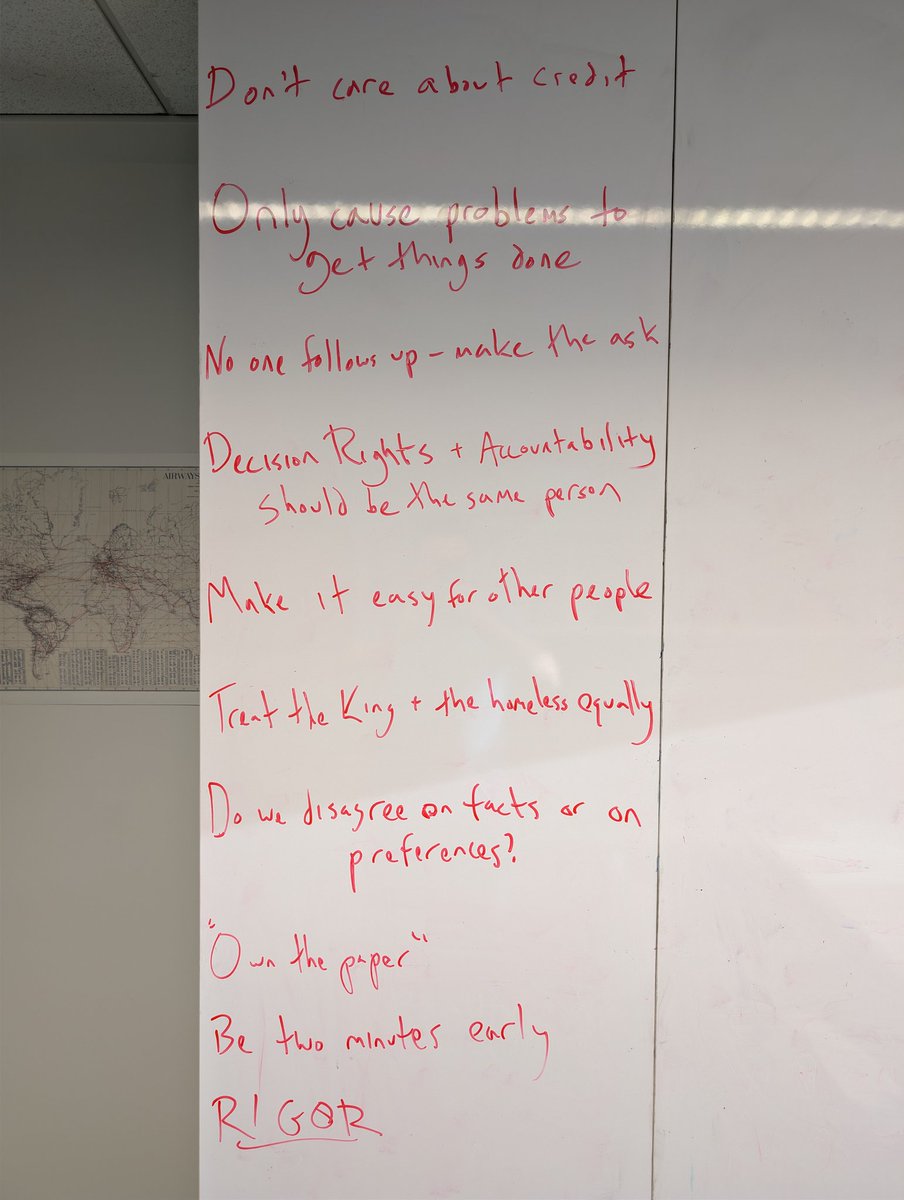 Don't care about credit
Only cause problems to
get things done
No one follows up - make the ask
Decision Rights + Accountability
should be the same person
Make it easy for other people
Treat the King + the homeless equally
Do we disagree on facts or on
preferences?
"Own the paper"
Be two minutes early
RIGOR
AIRWAYS